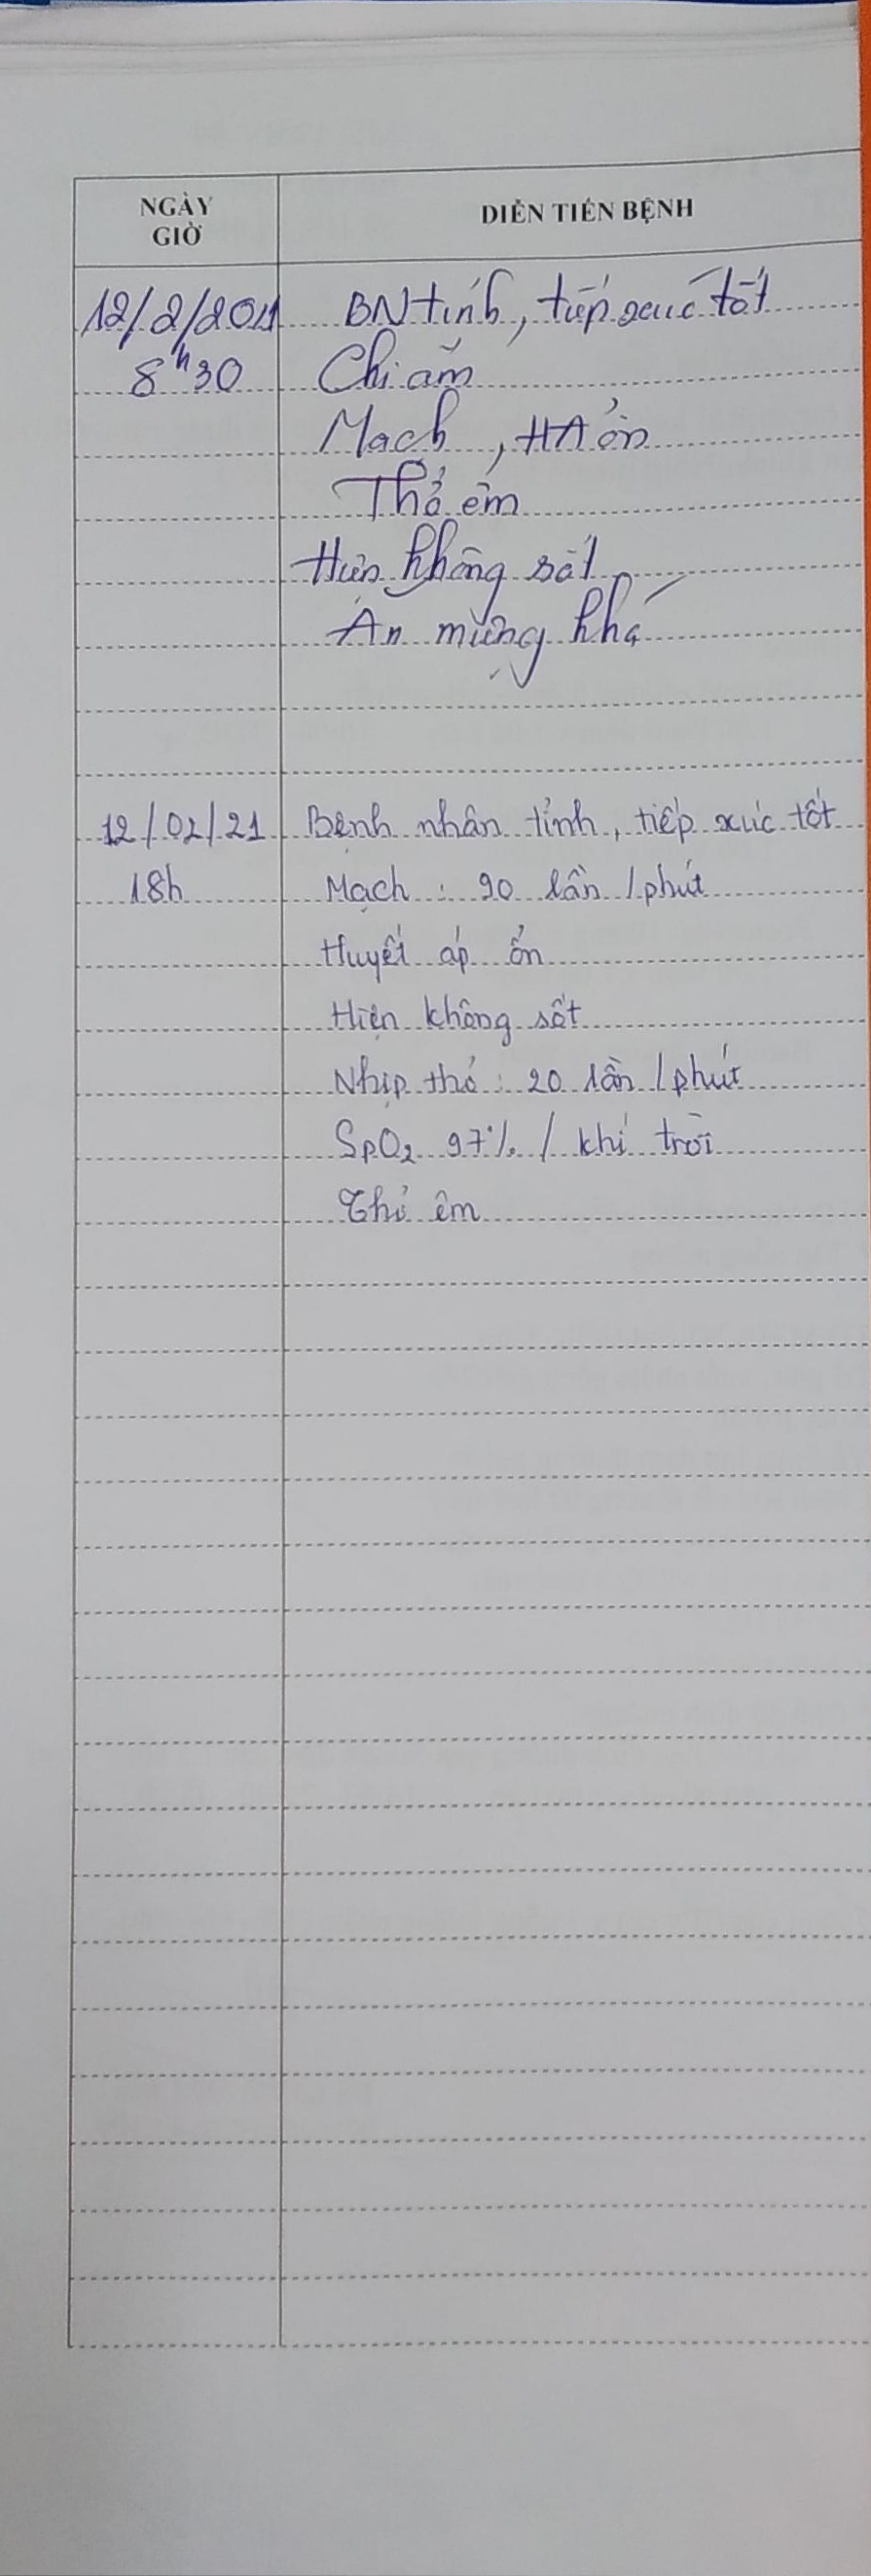 NGÀY
GIỜ
DIỄN TIẾN BỆNH
12/2/2021 BN tỉnh, tiếp xúc tốt
8h30 Chi ấm
Mạch, HA ổn
Thở êm
Hiện không sốt
Ăn miệng khá
12/02/21 Bệnh nhân tỉnh, tiếp xúc tốt
18h Mạch: 90 lần/phút
Huyết áp ổn
Hiện không sốt
Nhịp thở: 20 lần/phút
SpO2 97%/khí trời
Thở êm